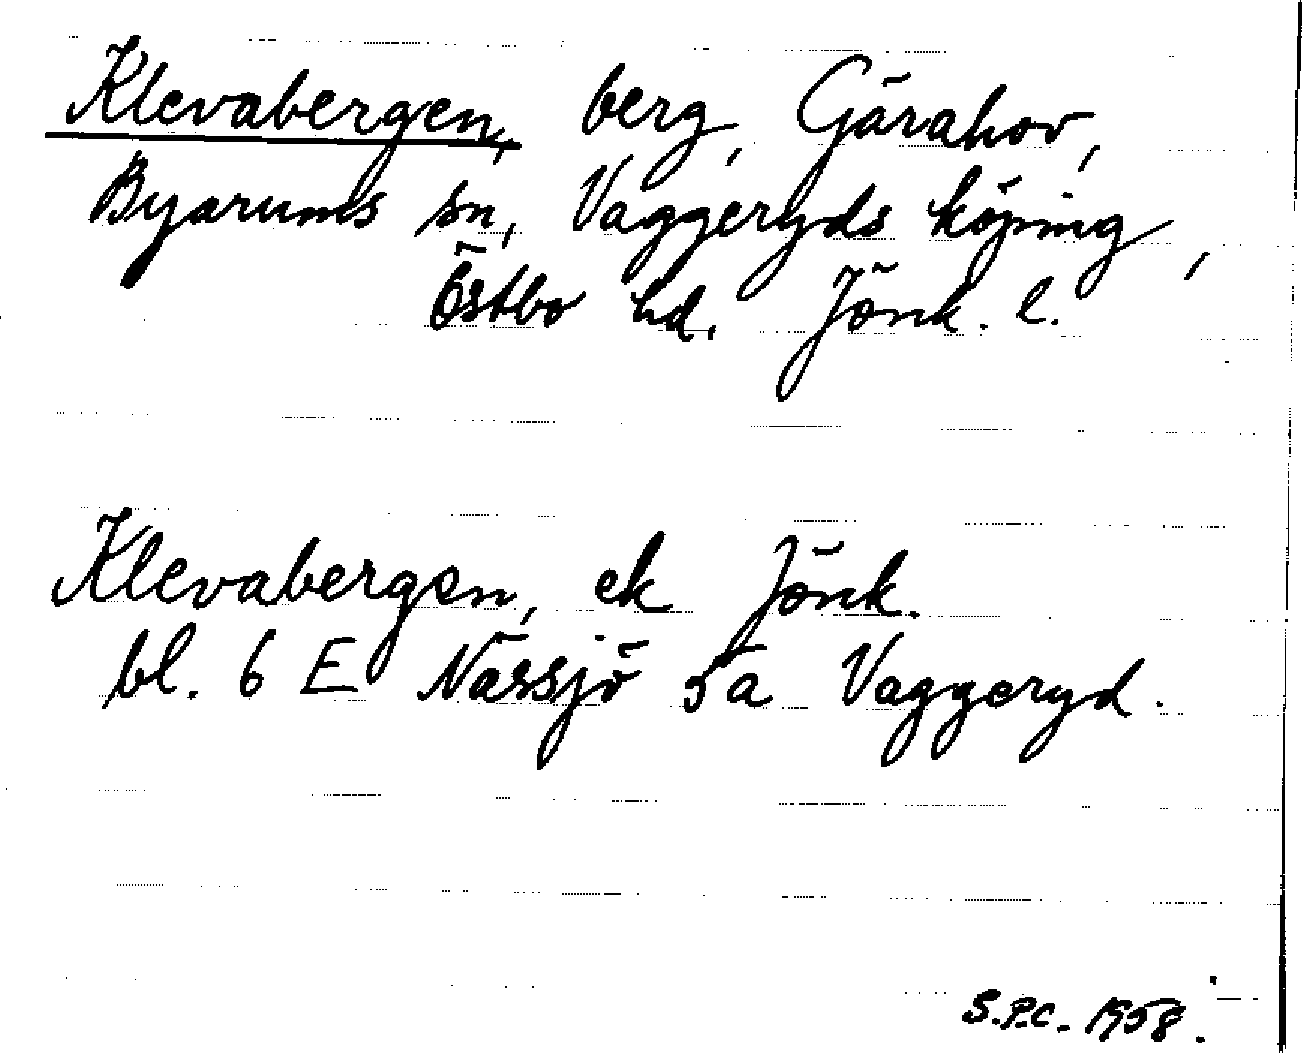 Klevabergen, berg, Gärahov,
Byarums sn, Vaggeryds köping,
Östbo hd. Jönk. l.
Klevabergen, ek Jönk.
bl. 6 E Nässjö 5a Vaggeryd.
S.P.C. 1958.